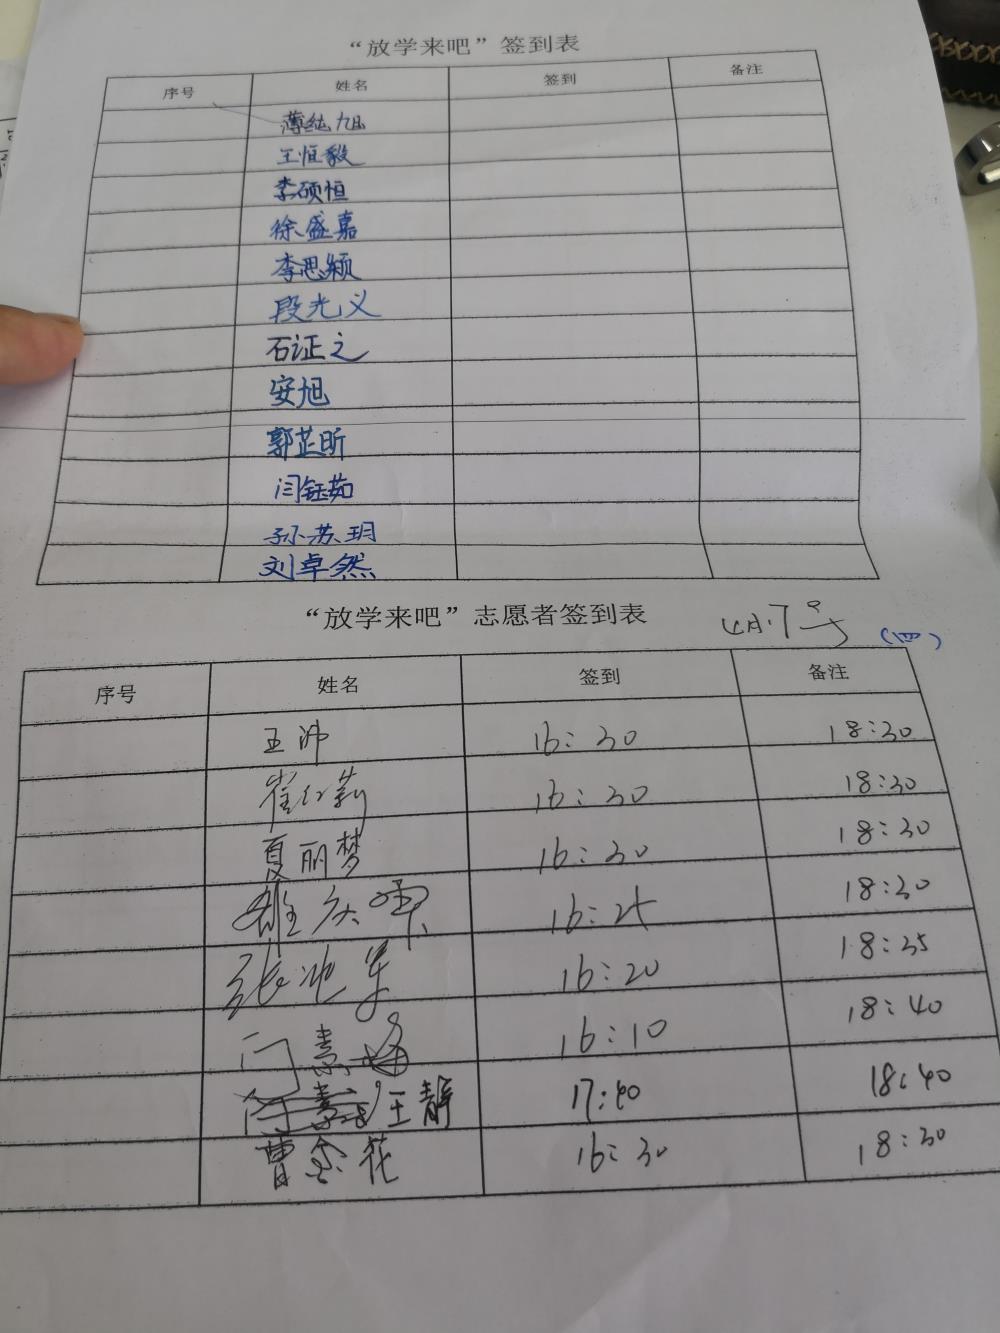 “放学来吧”签到表
序号 姓名 签到 备注
薄纯旭
王恒毅
李硕恒
徐盛嘉
李思颖
段光义
石证之
安旭
郭芷昕
闫钰茹
孙苏玥
刘卓然
“放学来吧”志愿者签到表 4月7号 (四)
序号 姓名 签到 备注
王帅 16:30 18:30
崔红莉 16:30 18:30
夏丽梦 16:30 18:30
16:25 18:30
张 军 16:20 18:35
门素 16:10 18:40
王静 17:40 18:40
曹金花 16:30 18:30